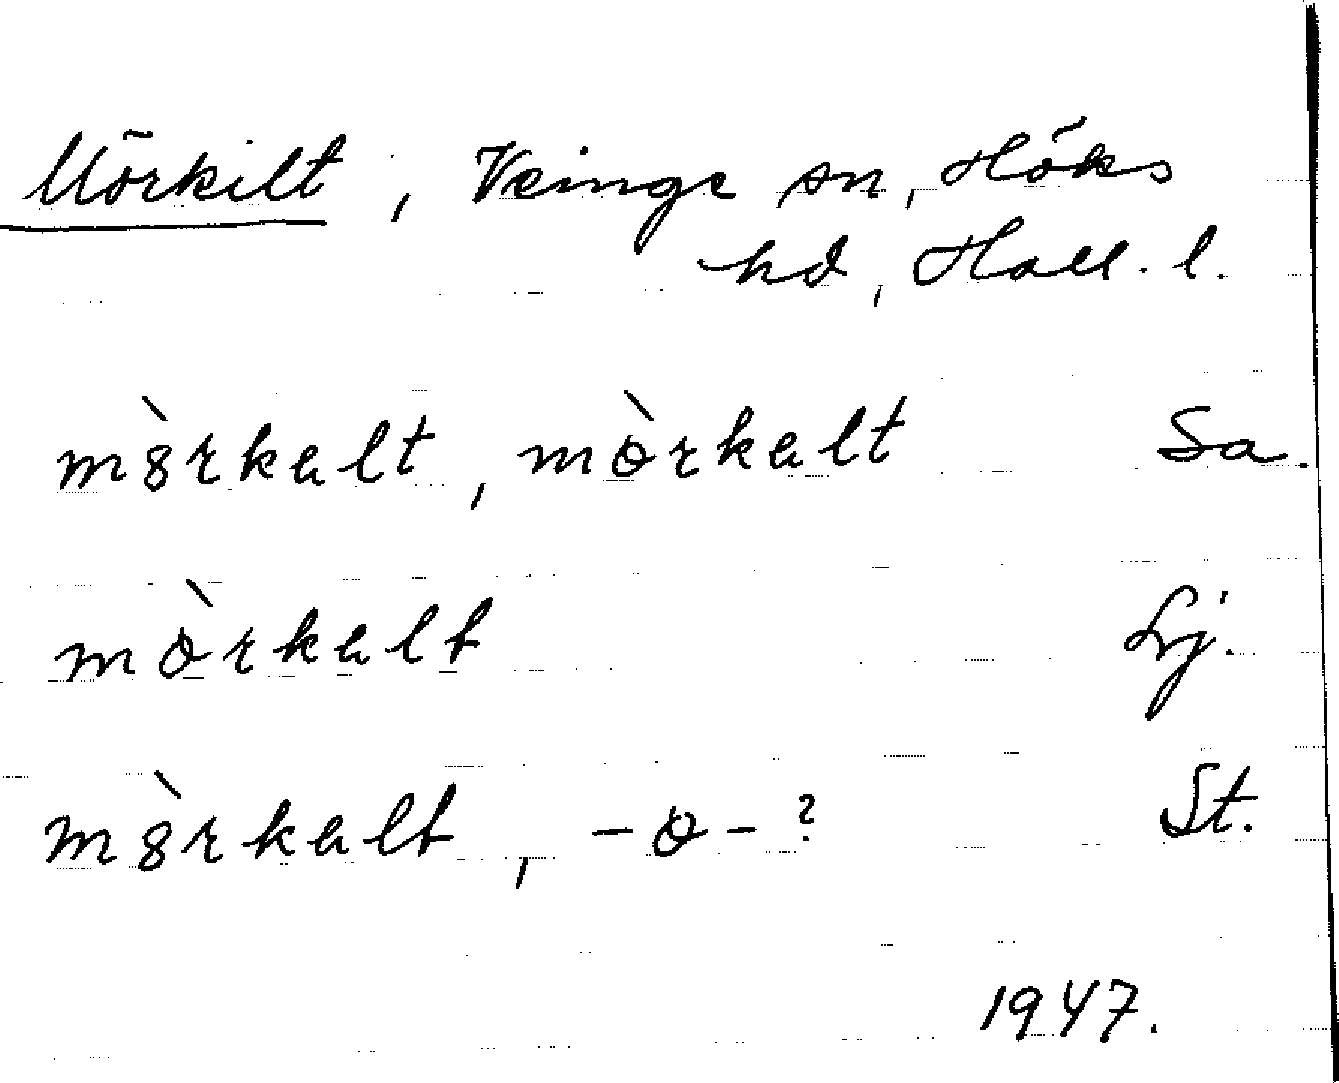 Mörkilt, Veinge sn, Höks
hd, Hall. l.
mò̀rkalt, mòrkalt Sa.
mòrkalt Lj.
mòrkalt, -o- ? St.
1947.